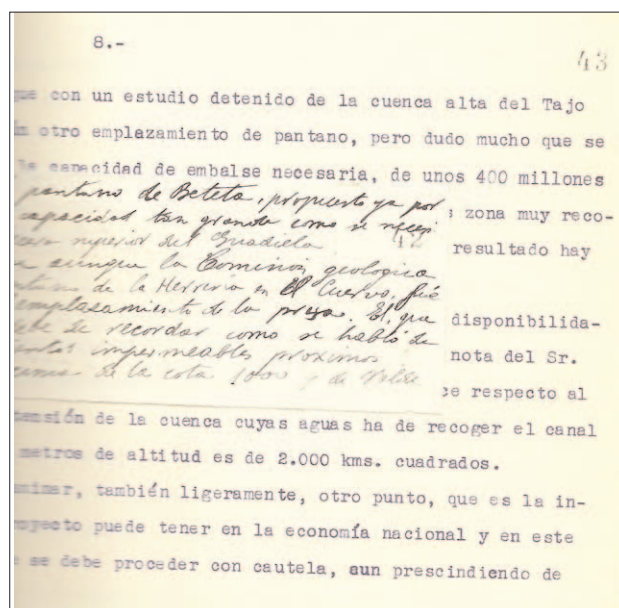 8.-
43
que con un estudio detenido de la cuenca alta del Tajo
otro emplazamiento de pantano, pero dudo mucho que se
la capacidad de embalse necesaria, de unos 400 millones
pantano de Beteta, propuesto ya por
capacidad tan grande como se
zona muy reco-
superior del Guadiela
42
resultado hay
aunque la Comisión geológica
de la Herrería en El Cuervo, fué
emplazamiento de la presa. El que
disponibilida-
debe se recordar como se habló de
impermeables próximos
nota del Sr.
de la cota 1000 y de
se respecto al
tensión de la cuenca cuyas aguas ha de recoger el canal
metros de altitud es de 2.000 kms. cuadrados.
minar, también ligeramente, otro punto, que es la in-
royecto puede tener en la economía nacional y en este
e se debe proceder con cautela, aun prescindiendo de